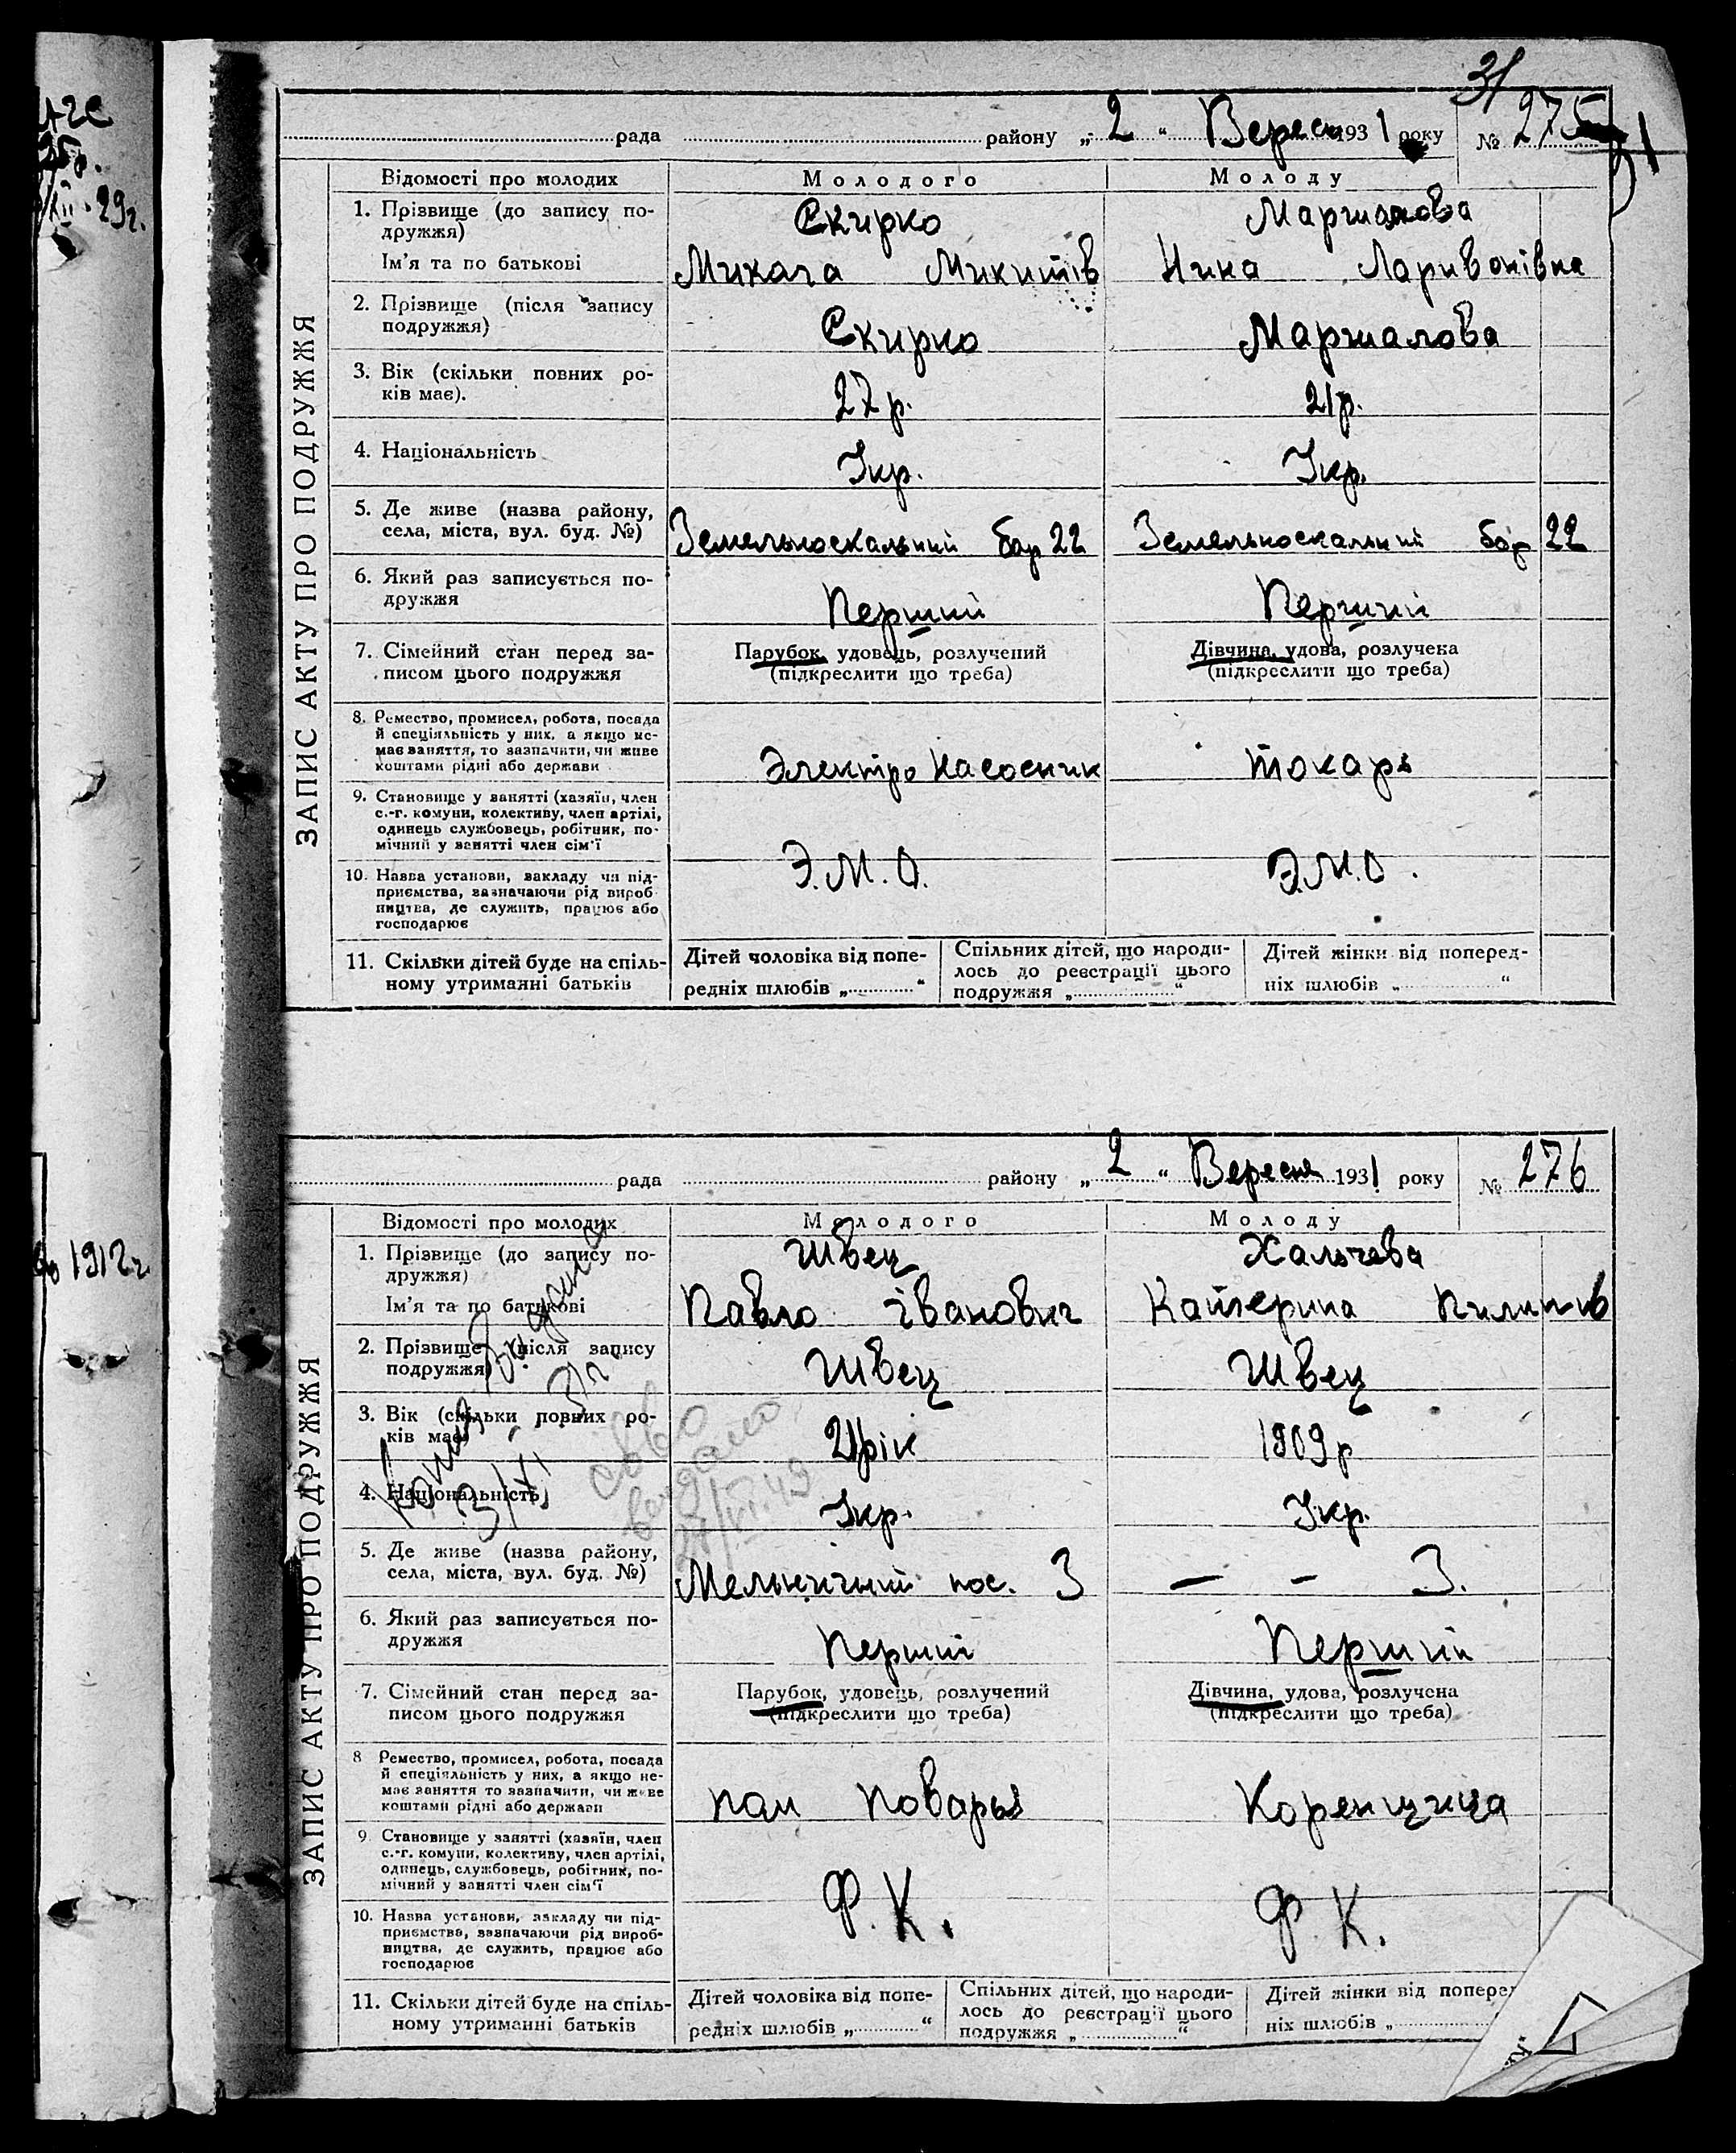 31
рада району „ 2 “ Вересн 1931 року № 275
Відомості про молодих Молодого Молоду
ЗАПИС АКТУ ПРО ПОДРУЖЖЯ
1. Прізвище (до запису по-
дружжя) Скирко Маршалова
Ім'я та по батькові Микола Микитів Нина Ларивонівна
2. Прізвище (після запису
подружжя) Скирко Маршалова
3. Вік (скільки повних ро-
ків має). 27 р. 21 р.
4. Національність Укр. Укр.
5. Де живе (назва району,
села, міста, вул. буд. №) Земельноскальний бар 22 Земельноскальний бар 22
6. Який раз записується по-
дружжя Перший Перший
7. Сімейний стан перед за-
писом цього подружжя
Парубок, удовець, розлучений
(підкреслити що треба)
Дівчина, удова, розлучена
(підкреслити що треба)
8. Ремество, промисел, робота, посада
й спеціяльність у них, а якщо не-
має заняття, то зазначити, чи живе
коштами рідні або держави
Электро Насосник токарь
9. Становище у занятті (хазяїн, член
с.-г. комуни, колективу, член артілі,
одинець службовець, робітник, по-
мічний у занятті член сім'ї
Э.М.О. Э.М.О.
10. Назва установи, закладу чи під-
приємства, зазначаючи рід вироб-
ництва, де служить, працює або
господарює
11. Скільки дітей буде на спіль-
ному утриманні батьків
Дітей чоловіка від попе-
редніх шлюбів „ “
Спільних дітей, що народи-
лось до реєстрації цього
подружжя „ “
Дітей жінки від поперед-
ніх шлюбів „ “
рада району „ 2 “ Вересня 1931 року № 276
Відомості про молодих Молодого Молоду
ЗАПИС АКТУ ПРО ПОДРУЖЖЯ
1. Прізвище (до запису по-
дружжя) Швец Хальчева
Ім'я та по батькові Павло Іванович Катерина Пилипів
2. Прізвище (після запису
подружжя) Швец Швец
3. Вік (скільки повних ро-
ків має) 21 рік 1909 р
4. Національність Укр. Укр.
5. Де живе (назва району,
села, міста, вул. буд. №) Мельничний пос. 3 — – 3.
6. Який раз записується по-
дружжя Перший Перший
7. Сімейний стан перед за-
писом цього подружжя
Парубок, удовець, розлучений
(підкреслити що треба)
Дівчина, удова, розлучена
(підкреслити що треба)
8 Ремество, промисел, робота, посада
й спеціяльність у них, а якщо не-
має заняття то зазначити, чи живе
коштами рідні або держави
пом поварья Коренщица
9 Становище у занятті (хазяїн, член
с.-г. комуни, колективу, член артілі,
одинець, службовець, робітник, по-
мічний у занятті член сім'ї
Ф.К. Ф.К.
10. Назва установи, закладу чи під-
приємства, зазначаючи рід вироб-
ництва, де служить, працює або
господарює
11. Скільки дітей буде на спіль-
ному утриманні батьків
Дітей чоловіка від попе-
редніх шлюбів „ “
Спільних дітей, що народи-
лось до реєстрації цього
подружжя „ “
Дітей жінки від поперед
ніх шлюбів „
Копия выдана
3/XI – 31 г.
св-во
выдано
27/VI.49
1912 г.